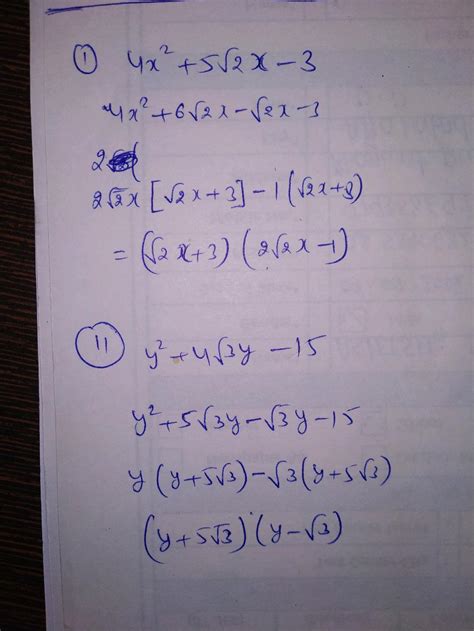 ① 4x² + 5√2x - 3
4x² + 6√2x - √2x - 3
2
2√2x [√2x + 3] - 1 (√2x + 3)
= (√2x + 3) (2√2x - 1)
⑪ y² + 4√3y - 15
y² + 5√3y - √3y - 15
y (y + 5√3) - √3 (y + 5√3)
(y + 5√3) (y - √3)